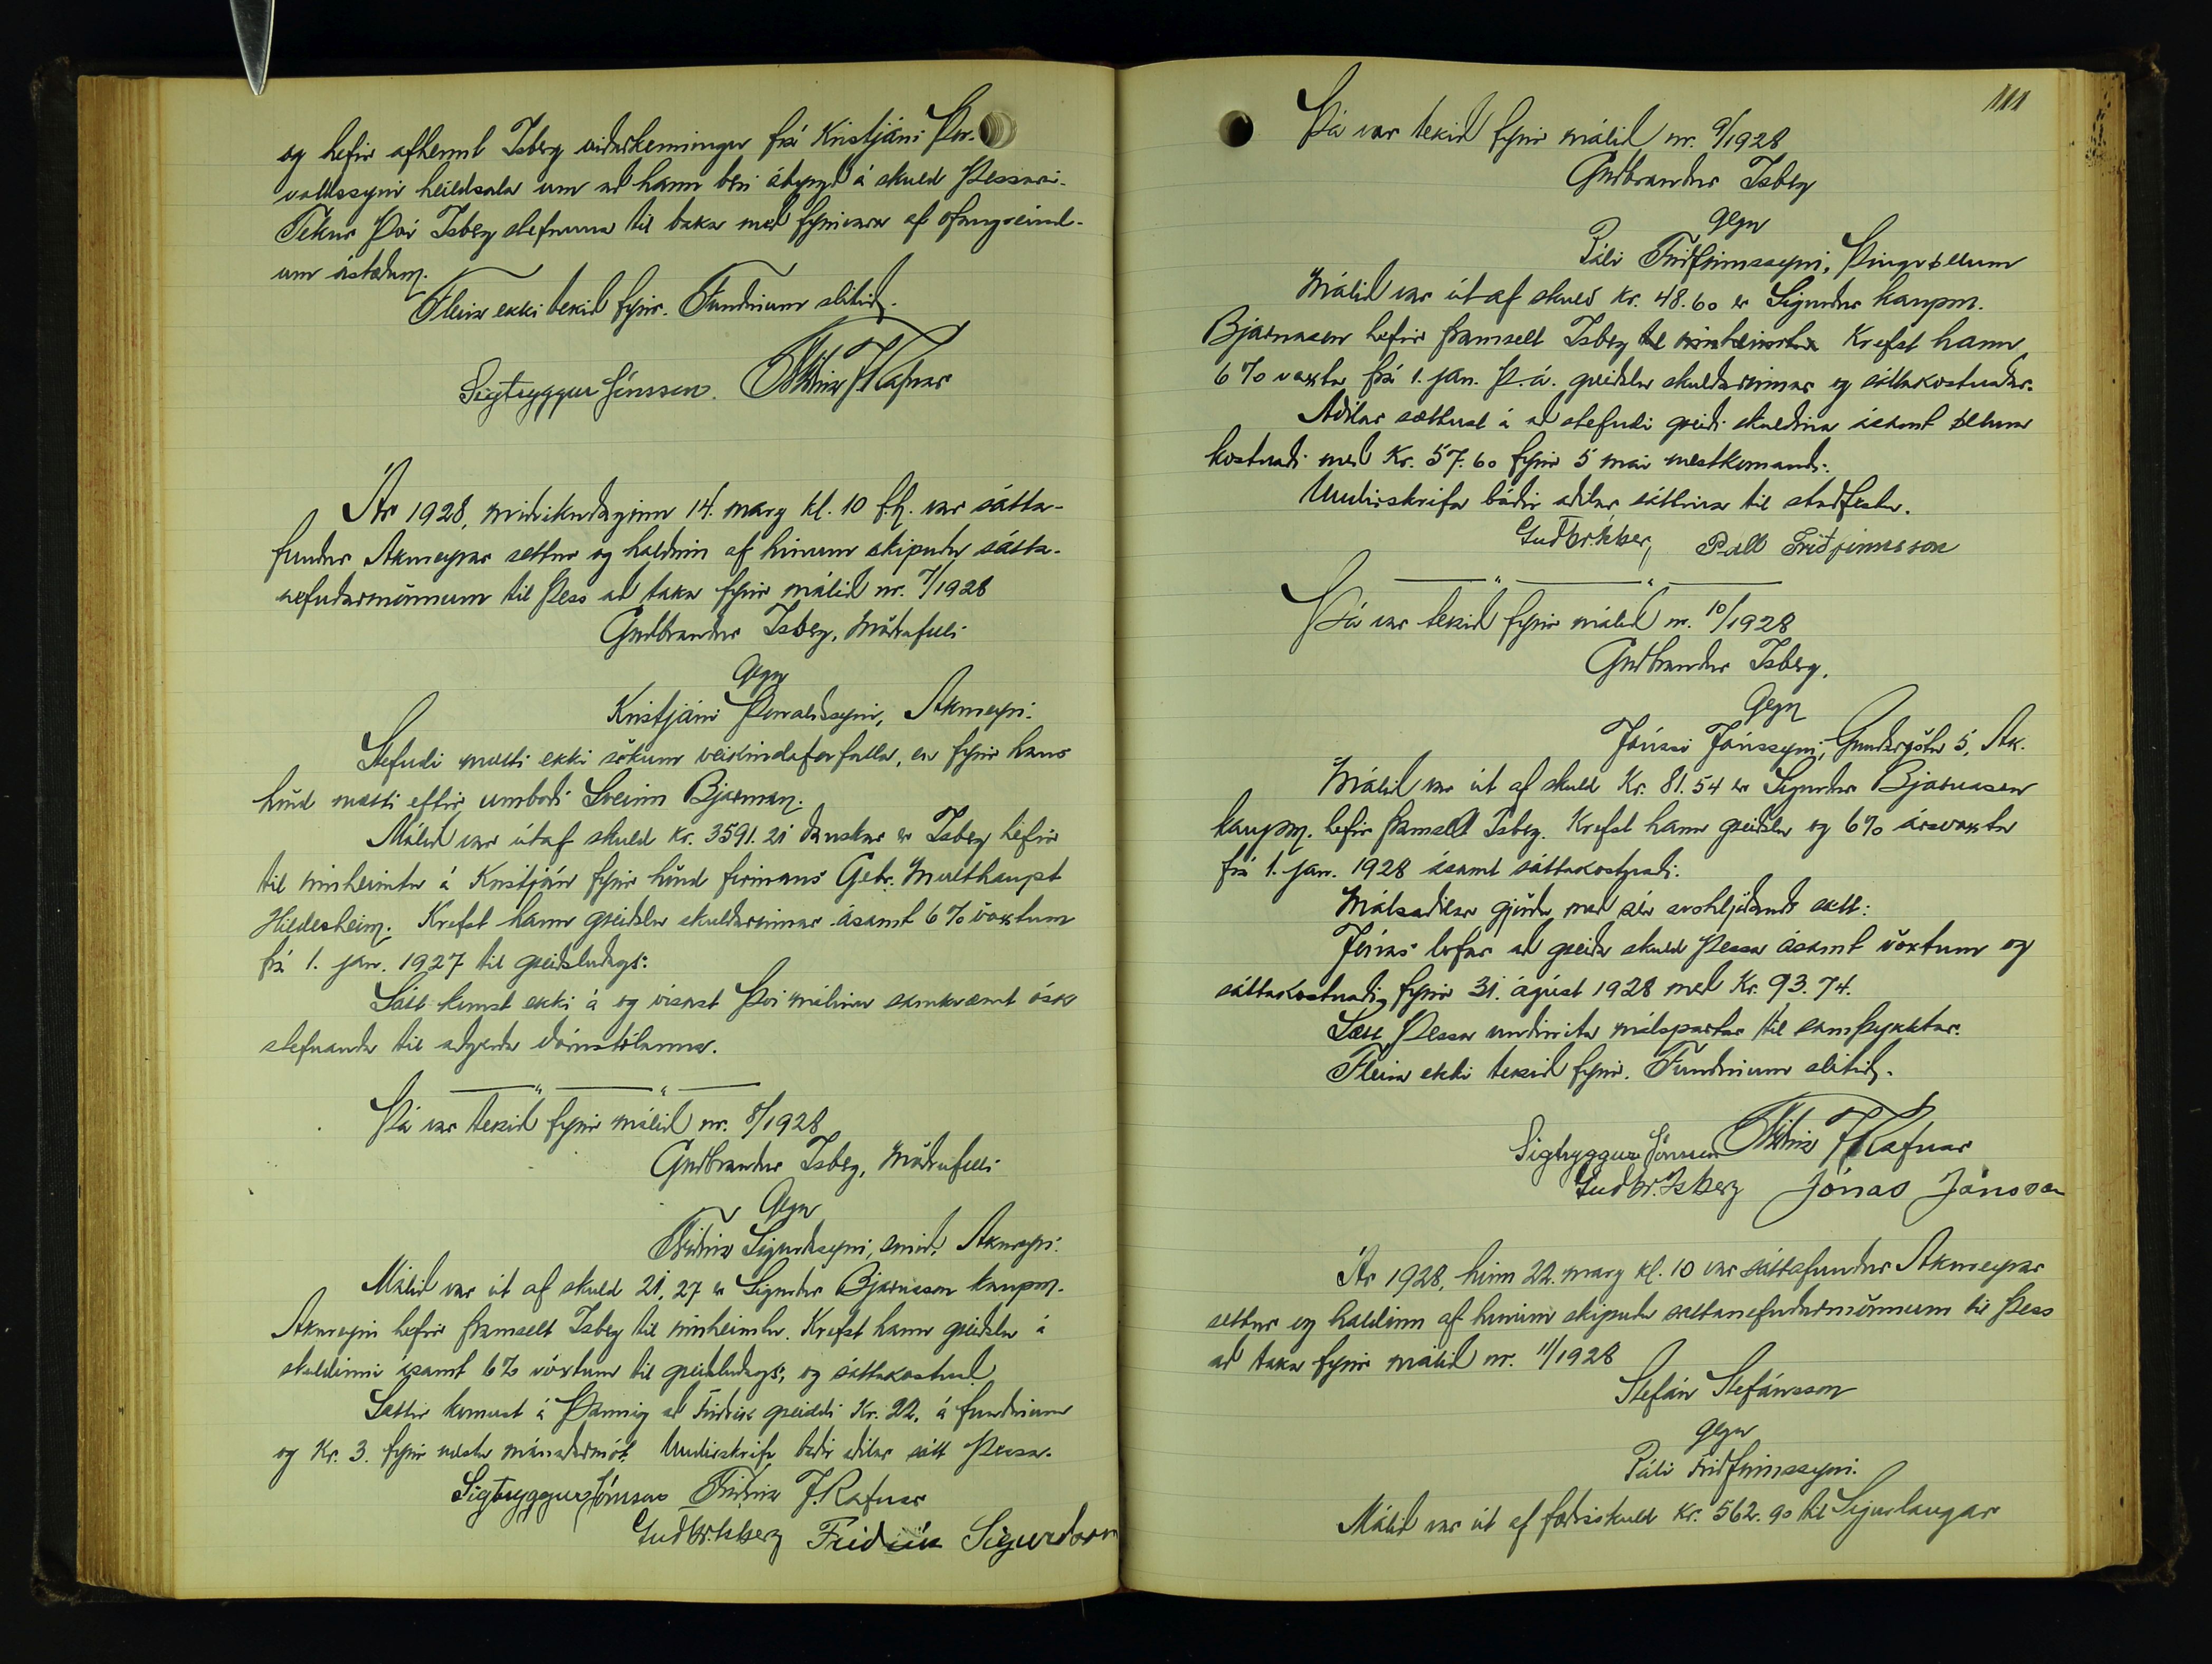 og hefir afhent Isberg viðurkenningu frá Kristjáni Þor-
valdssyni heildsala um að hann beri ábyrgð á skuld þessari.
Tekur því Isberg stefnuna til baka með fyrirvara af ofangreind-
um ástæðum.
Fleira ekki tekið fyrir. Fundinum slitið.
Sigtryggur Jónsson. Friðrik J Rafnar
Ár 1928, miðvikudaginn 14. marz kl. 10 f.h. var sátta-
fundur Akureyrar settur og haldinn af hinum skipuðu sátta-
nefndarmönnum til þess að taka fyrir málið nr. 7/1928
Guðbrandur Isberg, Möðrufelli
gegn
Kristjáni Þorvaldssyni, Akureyri.
Stefndi mætti ekki sökum veikindaforfalla, en fyrir hans
hönd mætti eftir umboði Sveinn Bjarman.
Málið var útaf skuld kr. 3591.21 danskar er Isberg hefir
til innheimtu á Kristján fyrir hönd firmans Gebr. Multhaupt
Hildesheim. Krefst hann greiðslu skuldarinnar ásamt 6% vöxtum
frá 1. jan. 1927 til greiðsludags.
Sátt komst ekki á og vísast því málinu samkvæmt ósk
stefnanda til aðgerða dómstólanna.
Þá var tekið fyrir málið nr. 8/1928
Guðbrandur Isberg, Möðrufelli
gegn
Friðrik Sigurðssyni, smið, Akureyri.
Málið var út af skuld 21.27 er Sigurður Bjarnason kaupm.
Akureyri hefir framselt Isberg til innheimtu. Krefst hann greiðslu á
skuldinni ásamt 6% vöxtum til greiðsludags, og sáttakostnað.
Sættir komust á þannig að Friðrik greiddi Kr. 22. á fundinum
og Kr. 3. fyrir næstu mánaðarmót. Undirskrifa báðir aðilar sátt þessa.
Sigtryggur Jónsson Friðrik J. Rafnar
Guðbr. Isberg Friðrik Sigurdsson
111
Þá var tekið fyrir málið nr. 9/1928
Guðbrandur Isberg
gegn
Páli Friðfinnssyni, Þingvöllum
Málið var út af skuld kr. 48.60 er Sigurður kaupm.
Bjarnason hefir framselt Isberg til innheimtu. Krefst hann
6% vaxta frá 1. jan. þ.á. greiðslu skuldarinnar og sáttakostnaðar.
Aðilar sættust á að stefndi greiði skuldina ásamt öllum
kostnaði með Kr. 57.60 fyrir 5 maí næstkomandi.
Undirskrifa báðir aðilar sáttina til staðfestu.
Guðbr. Isberg Páll Friðfinnsson
Þá var tekið fyrir málið nr. 10/1928
Guðbrandur Isberg,
gegn
Jónasi Jónssyni, Grundargötu 5, Ak.
Málið var út af skuld Kr. 81.54 er Sigurður Bjarnason
kaupm. hefir framselt Isberg. Krefst hann greiðslu og 6% ársvaxta
frá 1. jan. 1928 ásamt sáttakostnaði.
Málsaðilar gjörðu með sér svohljóðandi sátt:
Jónas lofar að greiða skuld þessa ásamt vöxtum og
sáttakostnaði, fyrir 31. ágúst 1928 með Kr. 93.74.
Sátt þessa undirrita málspartar til samþykktar.
Fleira ekki tekið fyrir. Fundinum slitið.
Sigtryggur Jónsson Friðrik J Rafnar
Guðbr. Isberg Jónas Jónsson
Ár 1928, hinn 22. marz kl. 10 var sáttafundur Akureyrar
settur og haldinn af hinum skipuðu sáttanefndarmönnum til þess
að taka fyrir málið nr. 11/1928
Stefán Stefánsson
gegn
Páli Friðfinnssyni.
Málið var út af fæðisskuld kr. 562.90 til Sigurlaugar